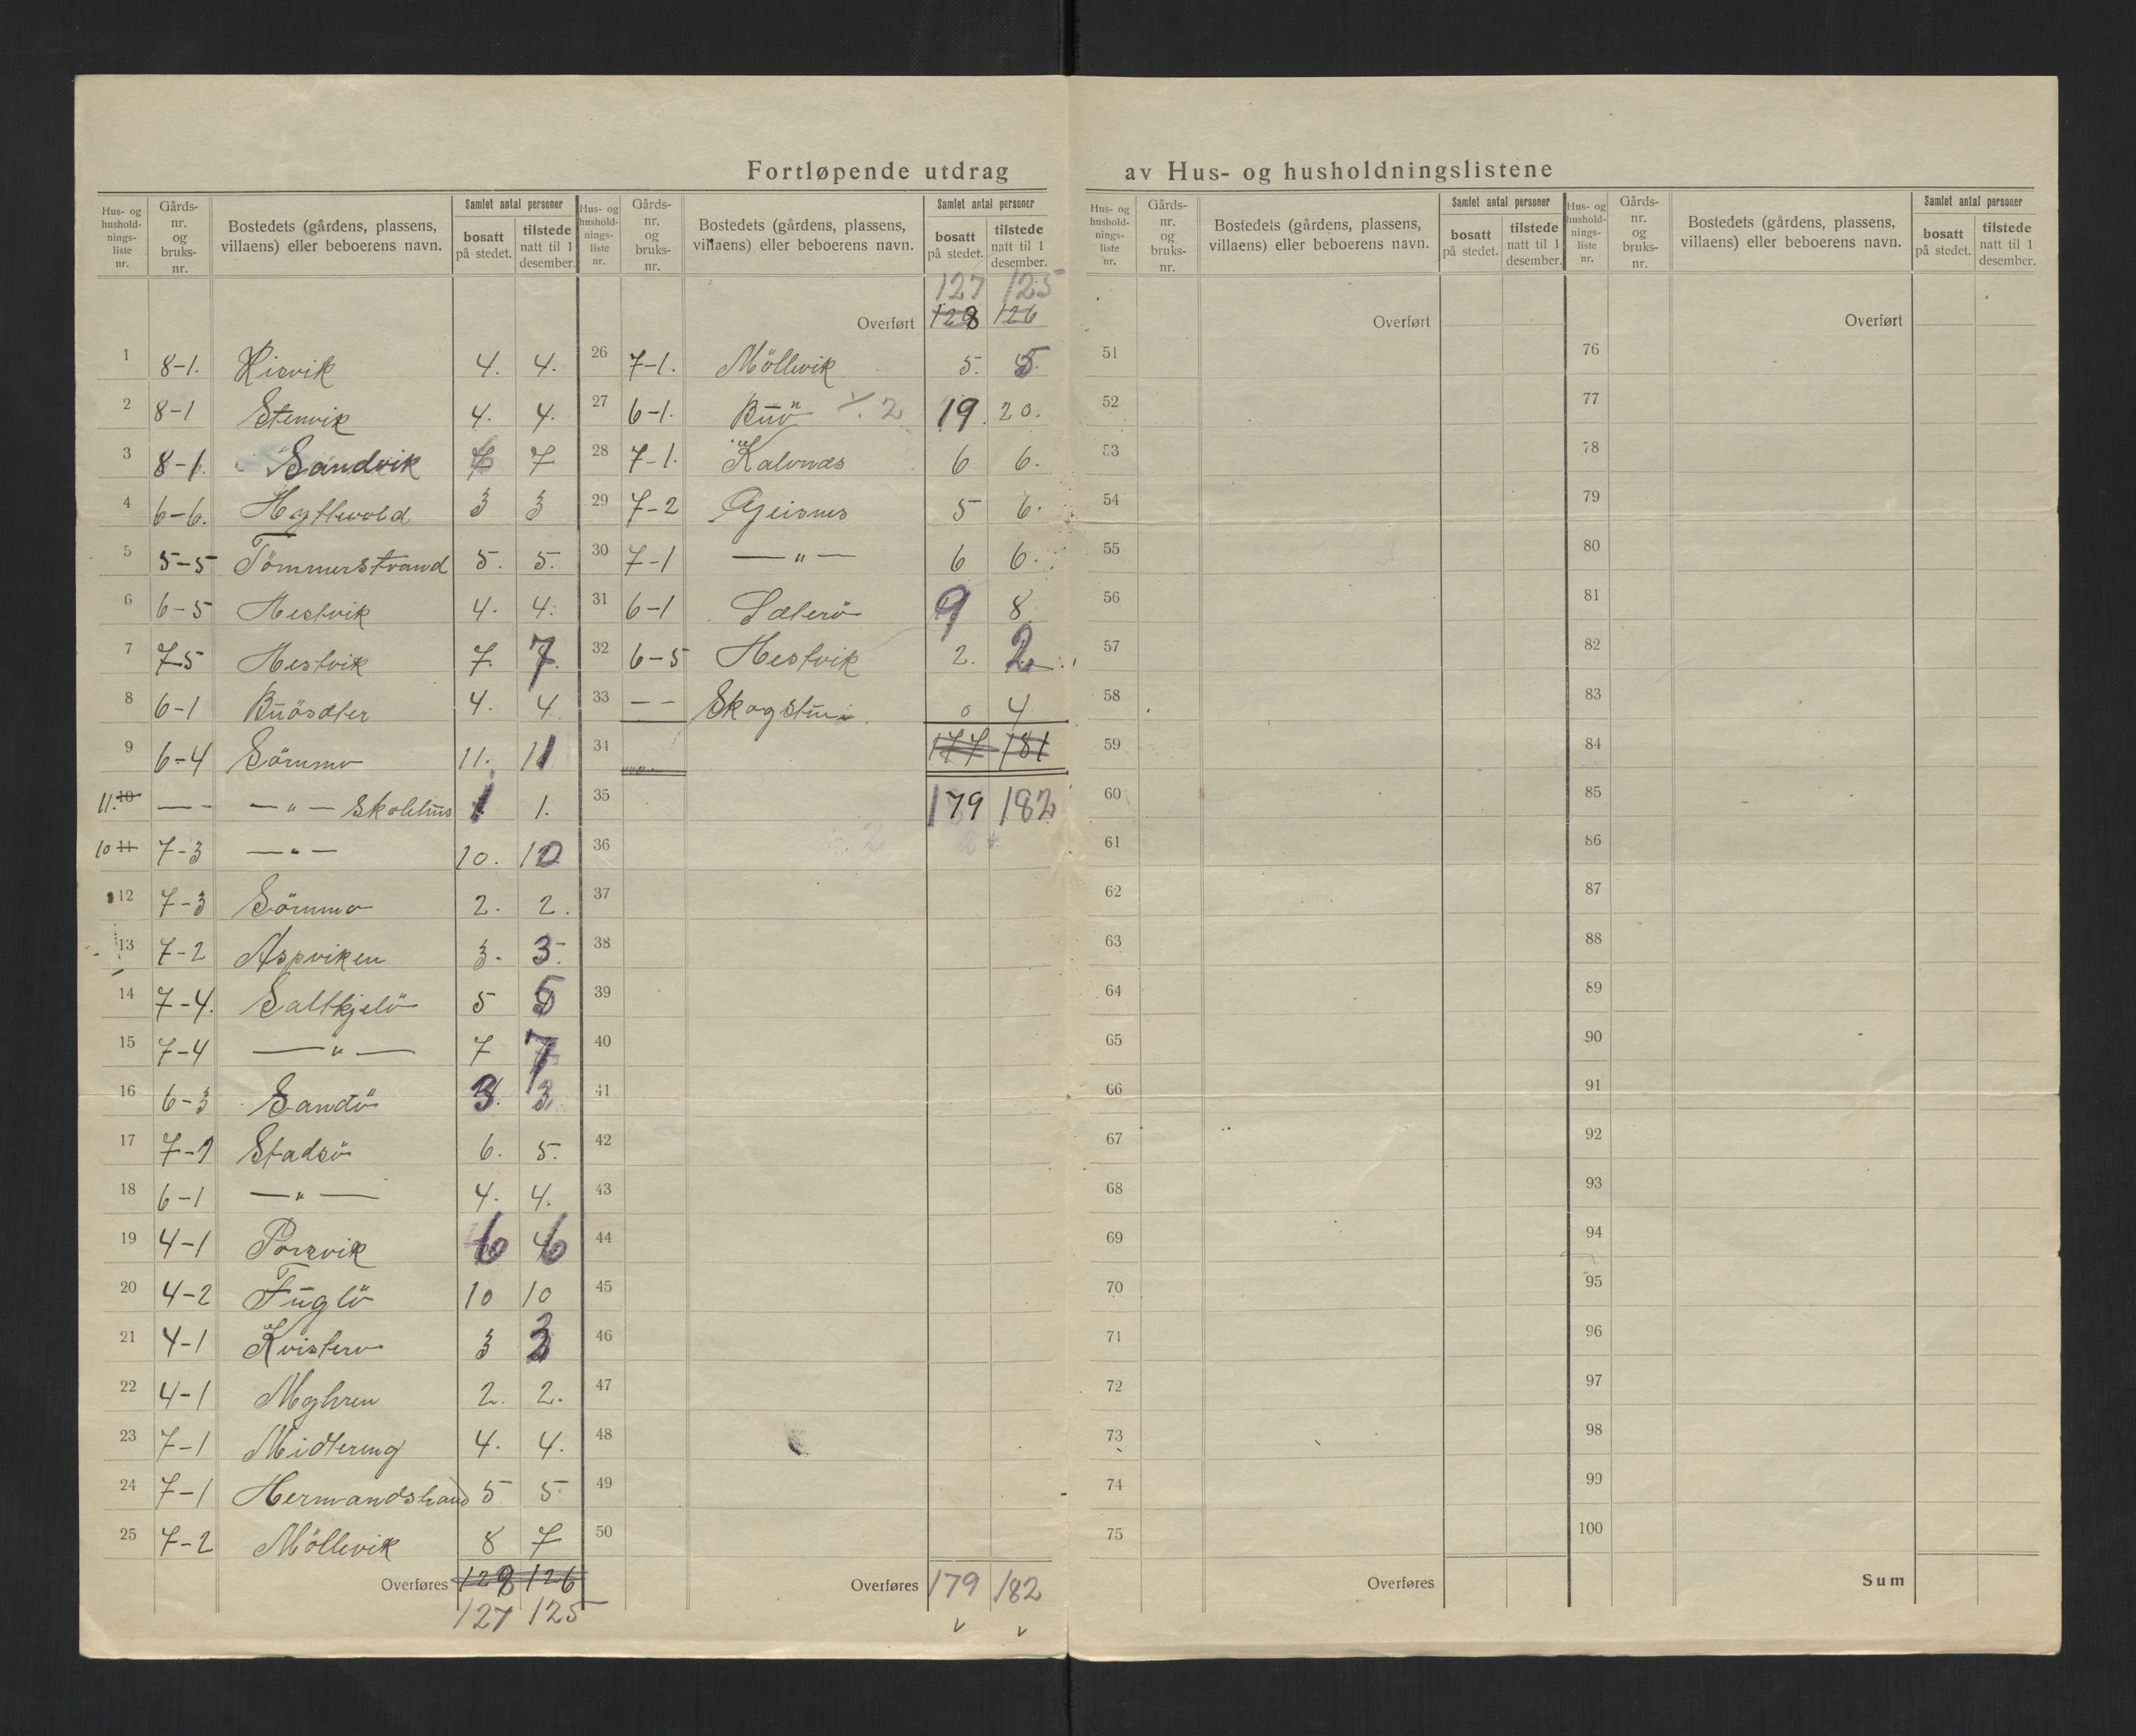 Fortløpende utdrag av Hus- og husholdningslistene
Hus- og husholdningsliste nr. | Gårdsnr. og bruksnr. | Bostedets (gårdens, plassens, villaens) eller beboerens navn. | Samlet antal personer | bosatt på stedet. | tilstede natt til 1 desember.
1 8-1. Hisvik 4. 4.
2 8-1 Stenvik 4. 4.
3 8-1. Sandvik 7
4 6-6. 3 3
5 5-5 Tömmerstrand 5. 5.
6 6-5 Hestvik 4. 4.
7 7-5 Hestvik 7. 7.
8 6-1 Buösæter 4. 4
9 6-4 Sömmo 11. 11
11. 10 — - — " — Skolehus 1 1.
10 11 7-3 — " — 10. 10
12 7-3 Sömmo 2. 2.
13 7-2 Aspviken 3. 3.
14 7-4. Saltkjelö 5 5
15 7-4 — " — 7 7
16 6-3 Sandö 3. 3
17 7-1 Stadsö 6. 5.
18 6-1 — " — 4. 4.
19 4-1 Porsvik 6 6
20 4-2 Fuglö 10 10
21 4-1 Kvisterö 3 3
22 4-1 2. 2.
23 7-1 Midtereng 4. 4.
24 7-1 5 5
25 7-2 Möllevik 8 7
Overføres 128 126
127 125
Hus- og husholdningsliste nr. | Gårdsnr. og bruksnr. | Bostedets (gårdens, plassens, villaens) eller beboerens navn. | Samlet antal personer | bosatt på stedet. | tilstede natt til 1 desember.
127 125
Overført 128 126
26 7-1. Möllevik 5. 5.
27 6-1. Buö ÷ 2 19. 20.
28 7-1. Kalvnes 6 6.
29 7-2 Gjeisnes 5 6.
30 7-1 — " — 6 6.
31 6-1 Sæterö 9 8
32 6-5 Hestvik 2. 2
33 — — 0 4
34 177 181
35 179 182
36
37
38
39
40
41
42
43
44
45
46
47
48
49
50
Overføres 179 182
Hus- og husholdningsliste nr. | Gårdsnr. og bruksnr. | Bostedets (gårdens, plassens, villaens) eller beboerens navn. | Samlet antal personer | bosatt på stedet. | tilstede natt til 1 desember.
Overført
51
52
53
54
55
56
57
58
59
60
61
62
63
64
65
66
67
68
69
70
71
72
73
74
75
Overføres
Hus- og husholdningsliste nr. | Gårdsnr. og bruksnr. | Bostedets (gårdens, plassens, villaens) eller beboerens navn. | Samlet antal personer | bosatt på stedet. | tilstede natt til 1 desember.
Overført
76
77
78
79
80
81
82
83
84
85
86
87
88
89
90
91
92
93
94
95
96
97
98
99
100
Sum